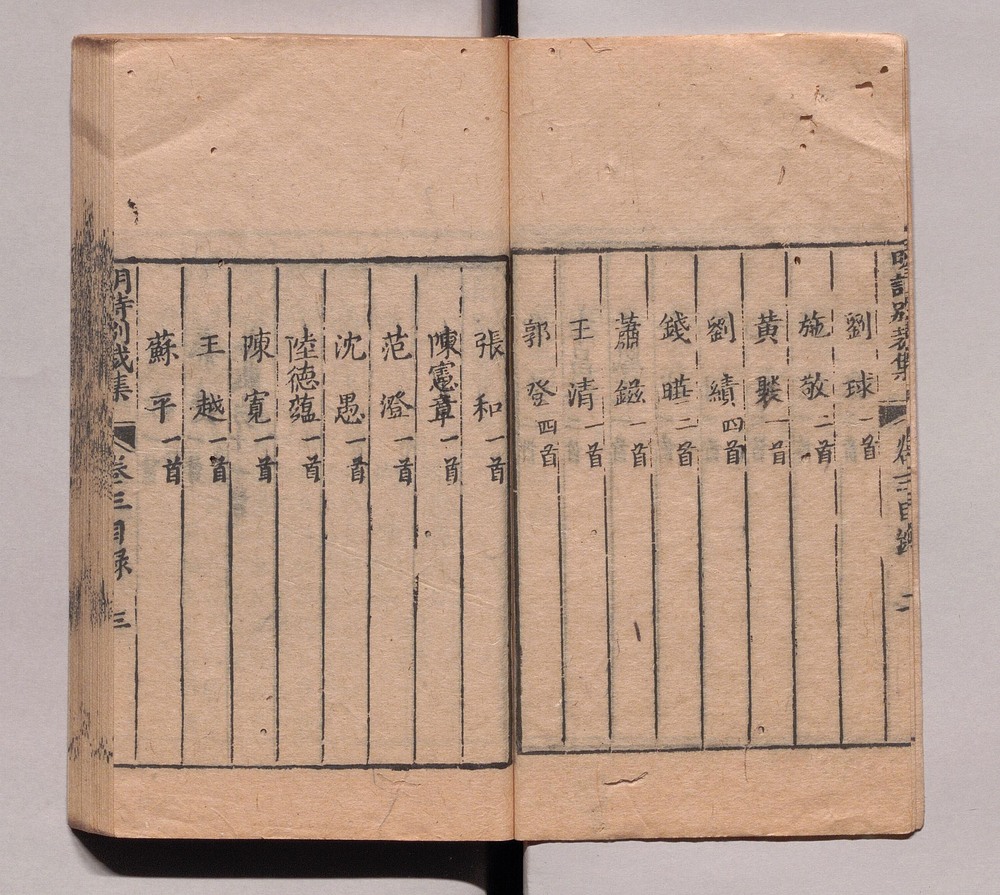 明詩別裁集 卷三目錄 二
劉球 一首
施敬 二首
黃褧 一首
劉績 四首
錢曄 二首
蕭鎡 一首
王清 一首
郭登 四首
張和 一首
陳憲章 一首
范澄 一首
沈愚 一首
陸德蘊 一首
陳寬 一首
王越 一首
蘇平 一首
明詩別裁集 卷三目録 三